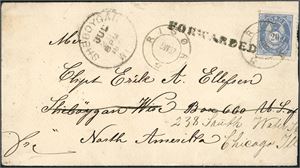 SHEBOYGAN
RISØR
FORWARDED
Mr.
Capt Erik A. Ellefsen
Sheboygan Wis Box 660 U.S.
238 South Water
North Amerikka
Chicago Ill